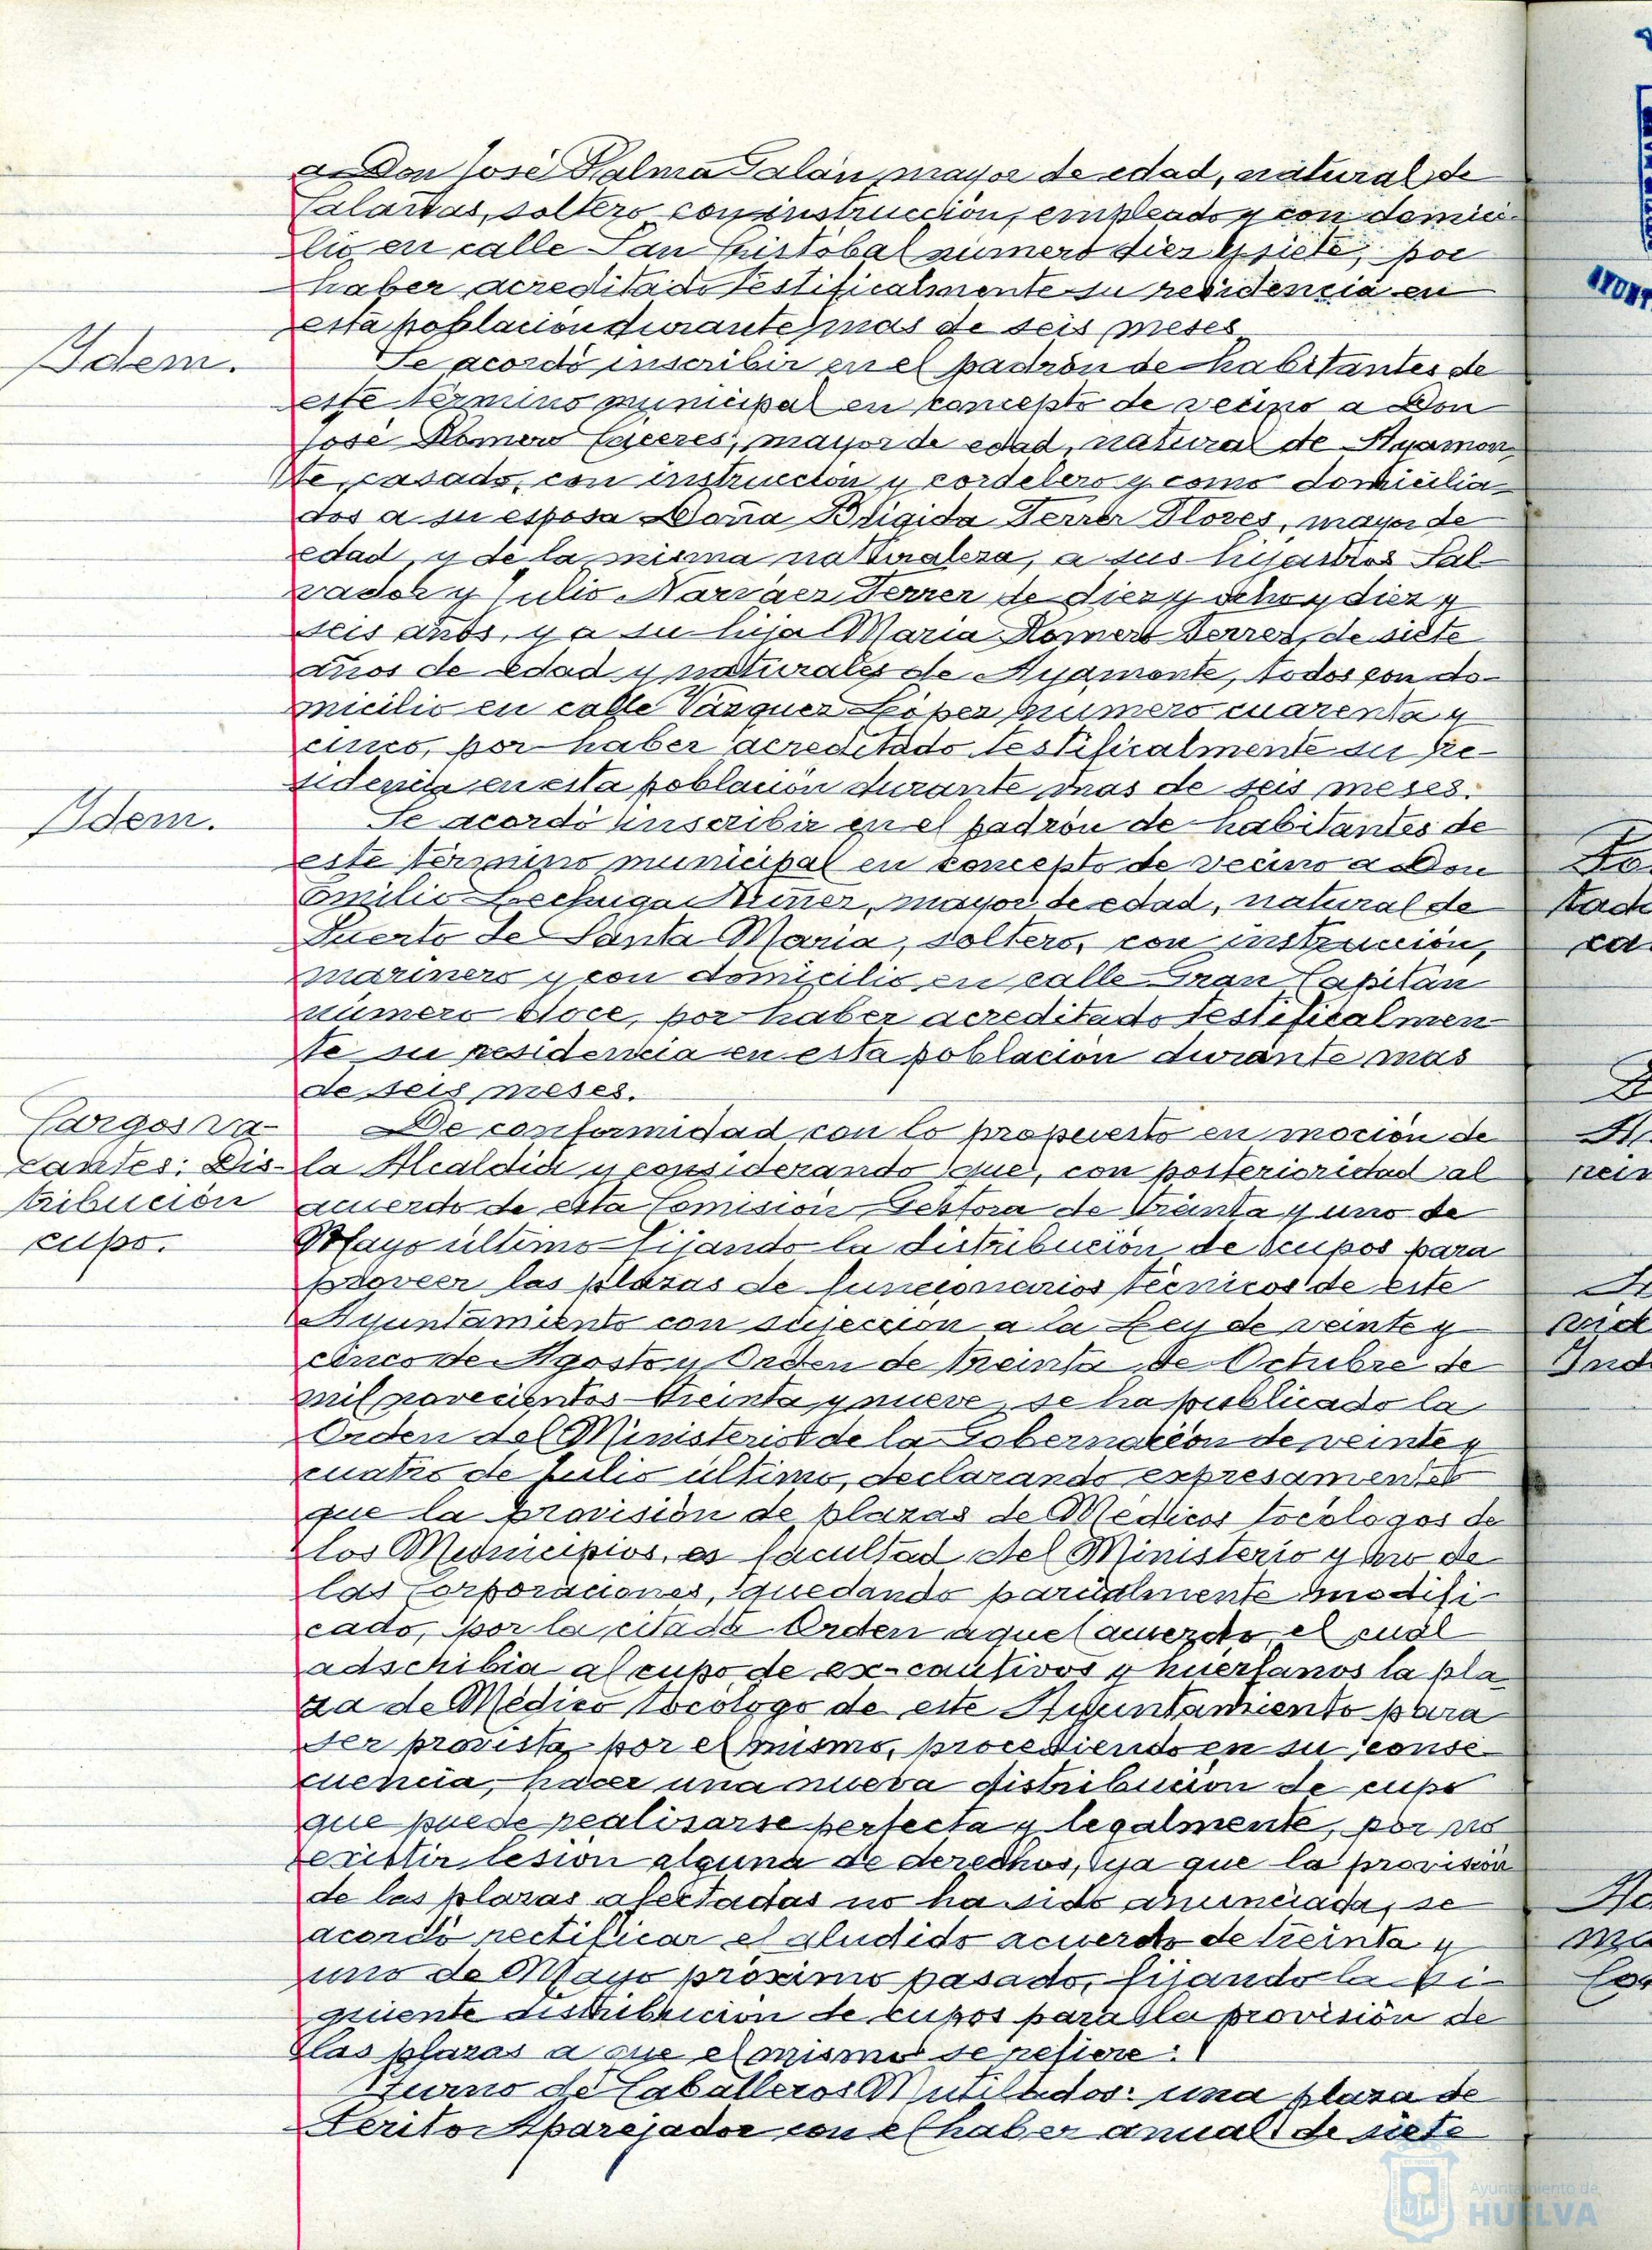 a Don José Palma Galán, mayor de edad, natural de
Calañas, soltero con instrucción, empleado y con domici-
lio en calle San Cristobal número diez y siete, por
haber acreditado testificalmente su residencia en
esta población durante mas de seis meses
Idem.
Se acordó inscribir en el padrón de habitantes de
este término municipal en concepto de vecino a Don
José Romero Cáceres, mayor de edad, natural de Ayamon
te, casado, con instrucción y cordelero y como domicilia-
dos a su esposa Doña Brigida Ferrer Flores, mayor de
edad y de la misma naturaleza, a sus hijastros Sal-
vador y Julio Narváez Ferrer de diez y ocho y diez y
seis años, y a su hija Maria Romero Ferrer, de siete
años de edad y naturales de Ayamonte, todos con do-
micilio en calle Vázquez López número cuarenta y
cinco, por haber acreditado testificalmente su re-
sidencia en esta población durante mas de seis meses.
Idem.
Se acordó inscribir en el padrón de habitantes de
este término municipal en concepto de vecino a Don
Emilio Lechuga Núñez, mayor de edad, natural de
Puerto de Santa Maria, soltero, con instrucción,
marinero y con domicilio en calle Gran Capitán
número doce, por haber acreditado testificalmen
te su residencia en esta población durante mas
de seis meses.
Cargos va-
cantes: Dis-
tribución
cupo.
De conformidad con lo propuesto en moción de
la Alcaldia y considerando que, con posterioridad al
acuerdo de esta Comisión Gestora de treinta y uno de
Mayo último fijando la distribución de cupos para
proveer las plazas de funcionarios técnicos de este
Ayuntamiento con sujeccion a la Ley de veinte y
cinco de Agosto y Orden de treinta de Octubre de
mil novecientos treinta y nueve, se ha publicado la
Orden del Ministerio de la Gobernación de veinte y
cuatro de Julio último, declarando expresamente
que la provisión de plazas de Médicos tocólogos de
los Municipios, es facultad del Ministerio y no de
las Corporaciones, quedando parcialmente modifi-
cado, por la citada Orden aquel acuerdo el cual
adschibia al cupo de ex-cautivos y huérfanos la pla
za de Médico tocólogo de este Ayuntamiento para
ser provista por el mismo, procediendo en su conse-
cuencia, hacer una nueva distribución de cupo
que puede realizarse perfecta y legalmente, por no
existir lesion alguna de derechos, ya que la provisión
de las plazas afectadas no ha sido anunciada, se
acordó rectificar el aludido acuerdo de treinta y
uno de Mayo próximo pasado, fijando la si-
guiente distribución de cupos para la provisión de
las plazas a que el mismo se refiere:
Turno de Caballeros Mutilados: una plaza de
Perito Aparejador con el haber anual de siete
Ayuntamiento de
HUELVA